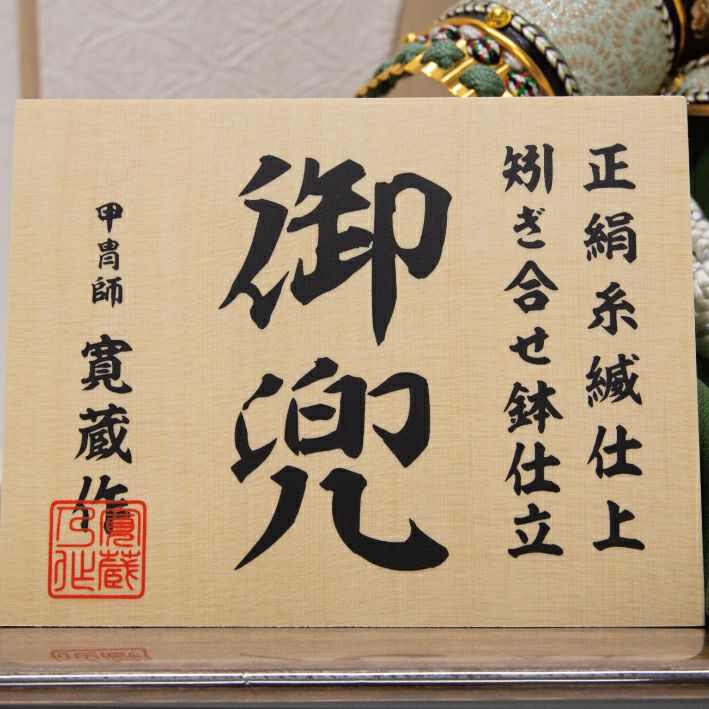 正絹糸縅仕上
矧ぎ合せ鉢仕立
御兜
甲冑師 寛蔵作